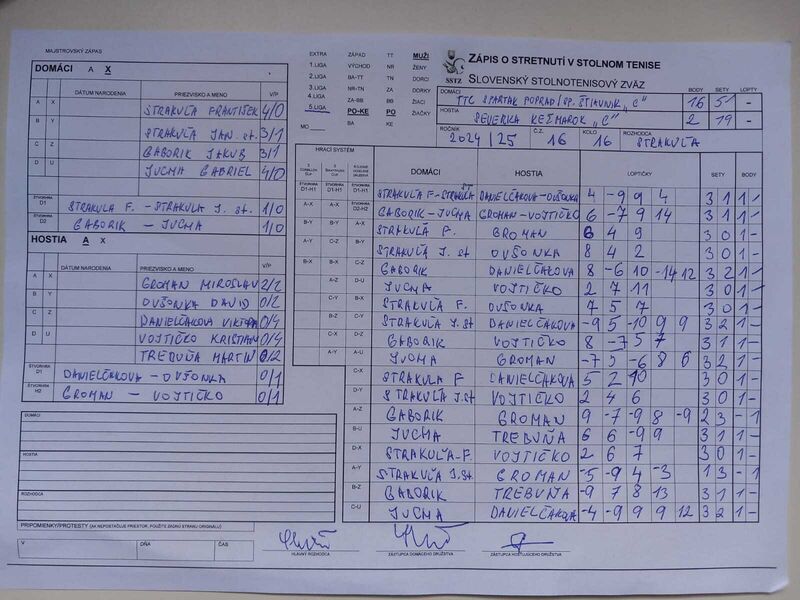 MAJSTROVSKÝ ZÁPAS
DOMÁCI A X
DÁTUM NARODENIA PRIEZVISKO A MENO V/P
A X STRAKUĽA FRANTIŠEK 4/0
B Y STRAKUĽA JÁN st. 3/1
C Z GABORIK JAKUB 3/1
D U JUCHA GABRIEL 4/0
ŠTVORHRA D1 STRAKUĽA F. - STRAKUĽA J. st. 1/0
ŠTVORHRA D2 GABORIK - JUCHA 1/0
HOSTIA A X
DÁTUM NARODENIA PRIEZVISKO A MENO V/P
A X GROMAN MIROSLAV 2/2
B Y OVŠONKA DAVID 0/2
C Z DANIELČÁKOVÁ VIKTÓRIA 0/4
D U VOJTIČKO KRISTIAN 0/4
TREBUŇA MARTIN 0/2
ŠTVORHRA D1 DANIELČÁKOVA - OVŠONKA 0/1
ŠTVORHRA H2 GROMAN - VOJTIČKO 0/1
DOMÁCI
HOSTIA
ROZHODCA
PRIPOMIENKY/PROTESTY (AK NEPOSTAČUJE PRIESTOR, POUŽITE ZADNÚ STRANU ORIGINÁLU)
V DŇA ČAS
EXTRA ZÁPAD TT MUŽI
1.LIGA VÝCHOD NR ŽENY
2.LIGA BA-TT TN DORCI
3.LIGA NR-TN ZA DORKY
4.LIGA ZA-BB BB ŽIACI
5.LIGA PO-KE PO ŽIAČKY
MO BA KE
SSTZ
ZÁPIS O STRETNUTÍ V STOLNOM TENISE
SLOVENSKÝ STOLNOTENISOVÝ ZVÄZ
DOMÁCI BODY SETY LOPTY
TTC SPARTAK POPRAD/SP. ŠTIAVNIK "C" 16 51 -
HOSTIA
SEVERKA KEŽMAROK "C" 2 19 -
ROČNÍK 2024/25 Č.Z. 16 KOLO 16 ROZHODCA STRAKUĽA
HRACÍ SYSTÉM
DOMÁCI HOSTIA LOPTIČKY SETY BODY
STRAKUĽA F-STRAKUĽA ST DANIELČÁKOVA-OVŠONKA 4 -9 9 4 3 1 1 -
GABORIK - JUCHA GROMAN - VOJTIČKO 6 -7 9 14 3 1 1 -
STRAKUĽA F. GROMAN 6 4 9 3 0 1 -
STRAKUĽA J. st OVŠONKA 8 4 2 3 0 1 -
GABORIK DANIELČÁKOVA 8 -6 10 -14 12 3 2 1 -
JUCHA VOJTIČKO 2 7 11 3 0 1 -
STRAKUĽA F. OVŠONKA 7 5 7 3 0 1 -
STRAKUĽA J. st DANIELČÁKOVA -9 5 -10 9 9 3 2 1 -
GABORIK VOJTIČKO 8 -7 5 7 3 1 1 -
JUCHA GROMAN -7 5 -6 8 6 3 2 1 -
STRAKUĽA F DANIELČÁKOVA 5 2 10 3 0 1 -
STRAKUĽA J.st VOJTIČKO 2 4 6 3 0 1 -
GABORIK GROMAN 9 -7 -9 8 -9 2 3 - 1
JUCHA TREBUŇA 6 6 -9 9 3 1 1 -
STRAKUĽA-F. VOJTIČKO 2 6 7 3 0 1 -
STRAKUĽA J.st GROMAN -5 -9 4 -3 1 3 - 1
GABORIK TREBUŇA -9 7 8 13 3 1 1 -
JUCHA DANIELČÁKOVA -4 -9 9 9 12 3 2 1 -
HLAVNÝ ROZHODCA ZÁSTUPCA DOMÁCEHO DRUŽSTVA ZÁSTUPCA HOSŤUJÚCEHO DRUŽSTVA